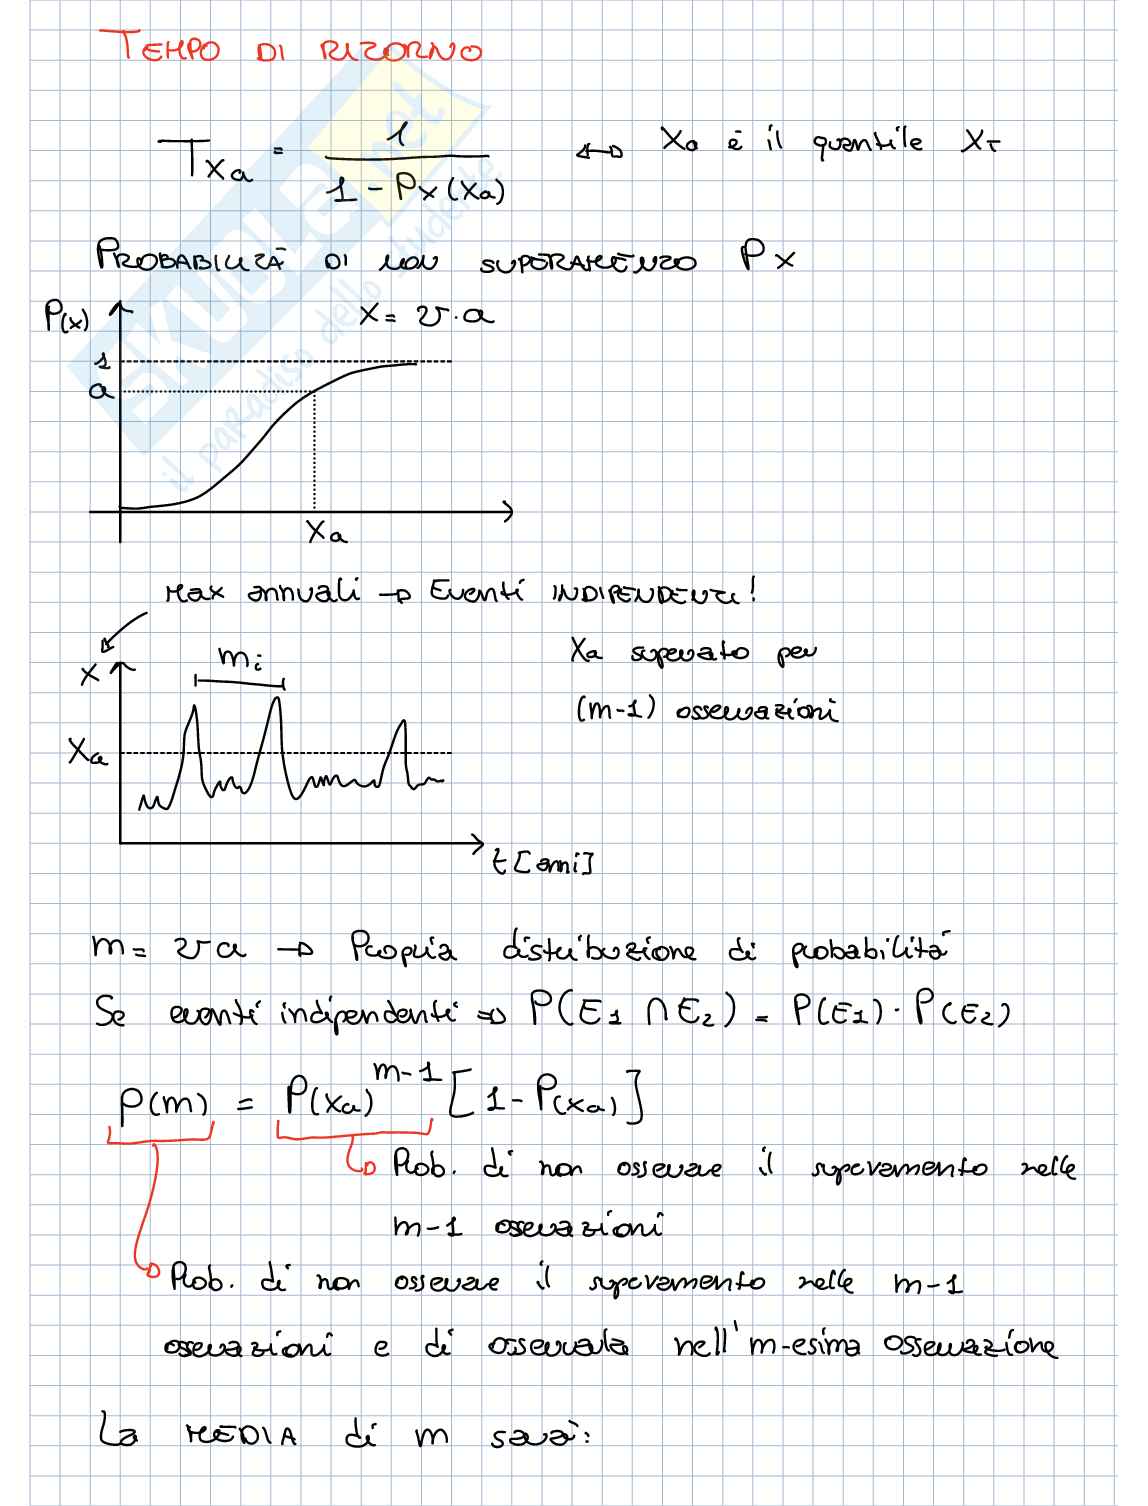 TEMPO DI RITORNO
T_Xa = 1 / (1 - Px(Xa)) ↔ Xa è il quantile X_T
PROBABILITÀ DI NON SUPERAMENTO Px
P(x) X = v.a
1
a
Xa
Max annuali → Eventi INDIPENDENTI!
X mi Xa superato per
(m-1) osservazioni
Xa
t [anni]
m = v a → Propria distribuzione di probabilità
Se eventi indipendenti ⇒ P(E1 ∩ E2) = P(E1) · P(E2)
P(m) = P(Xa)^(m-1) [1 - P(Xa)]
Prob. di non osservare il superamento nelle
m-1 osservazioni
Prob. di non osservare il superamento nelle m-1
osservazioni e di osservarla nell'm-esima osservazione
La MEDIA di m sarà:
SKUOLA.net
il paradiso dello studente